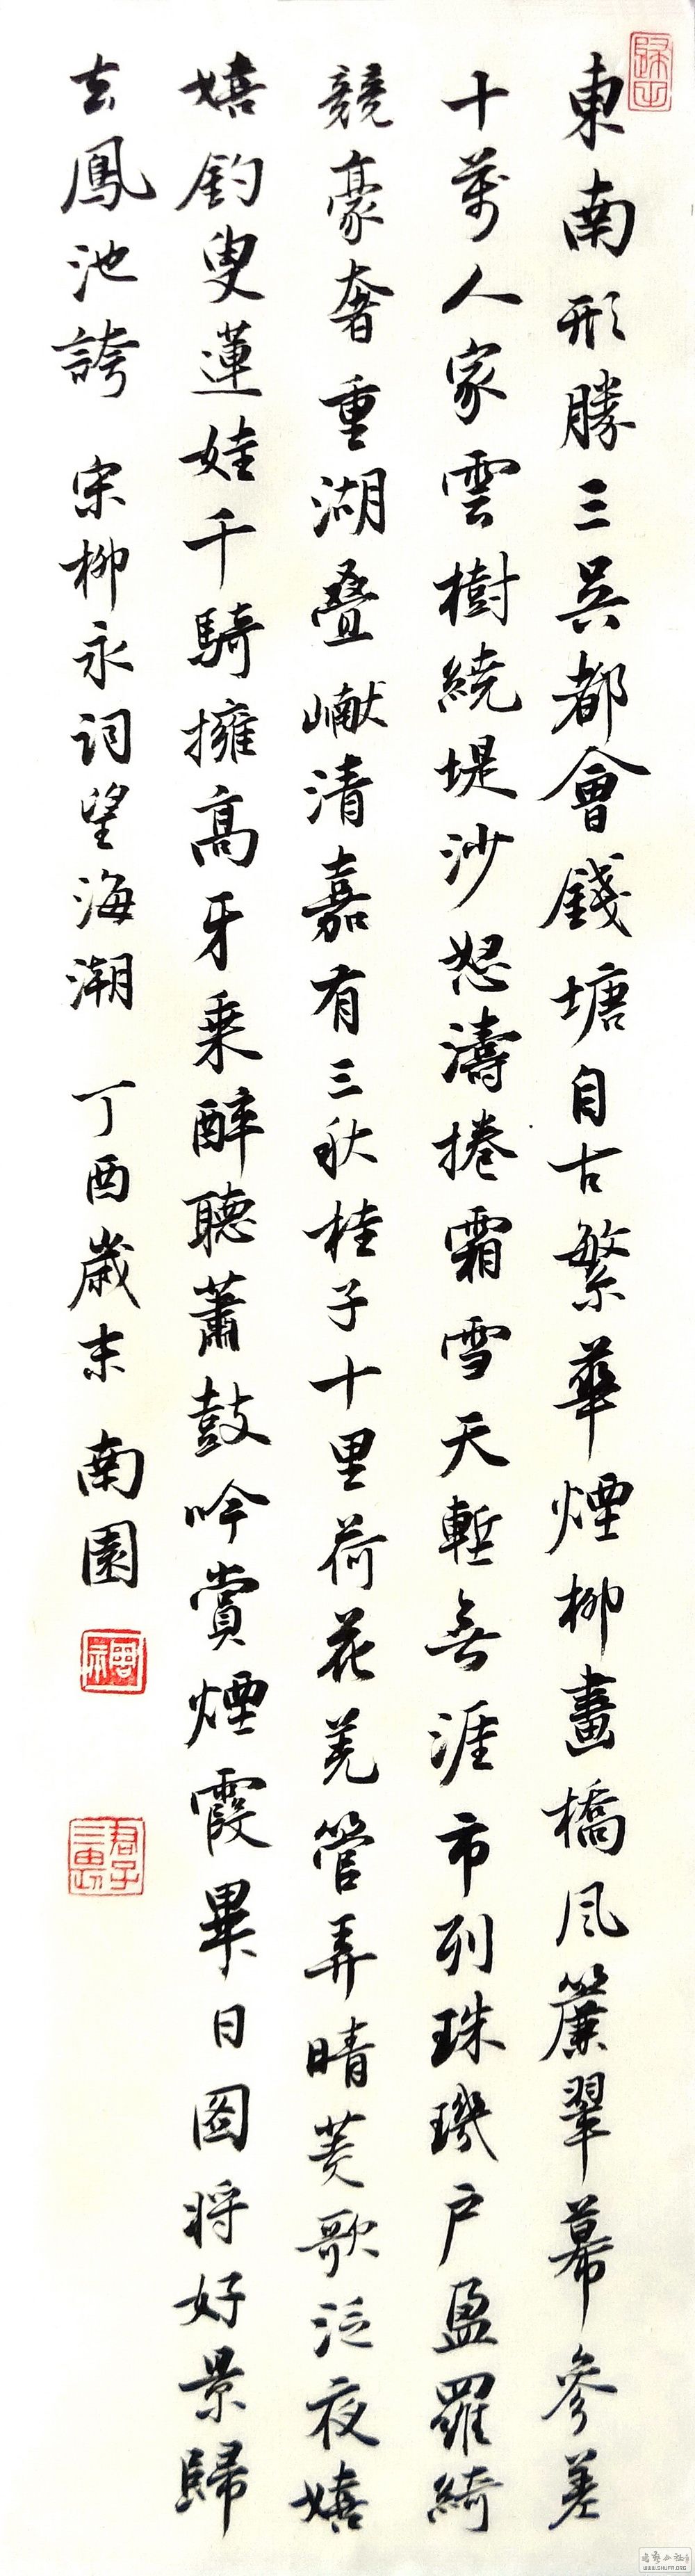 東南形勝三吳都會錢塘自古繁華煙柳畫橋风簾翠幕參差
十萬人家雲樹繞堤沙怒濤捲霜雪天塹無涯市列珠璣户盈羅綺
競豪奢重湖疊巘清嘉有三秋桂子十里荷花羌管弄晴菱歌泛夜嬉
嬉釣叟蓮娃千騎擁高牙乘醉聽蕭鼓吟賞煙霞異日圖将好景歸
去鳳池誇 宋柳永词望海潮 丁酉歲末 南園
君子三思
WWW.SHUFA.ORG